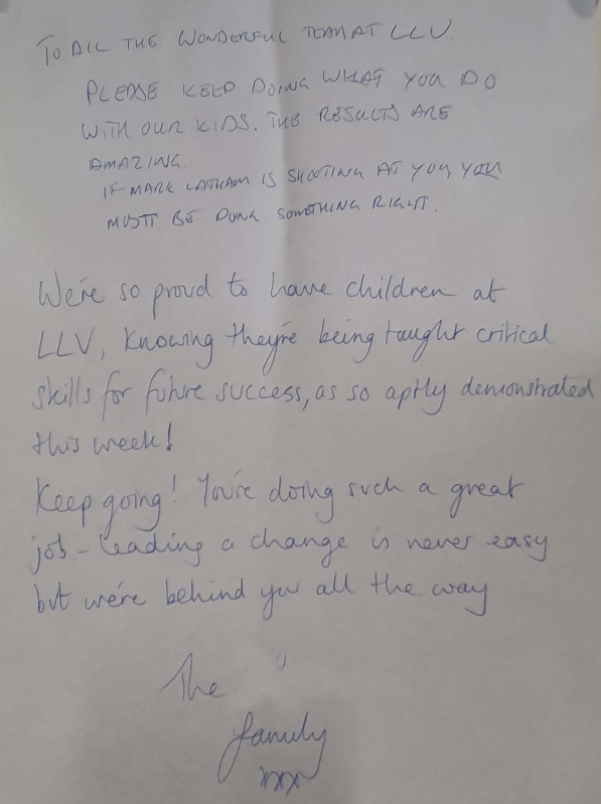 TO ALL THE WONDERFUL TEAM AT LLV.
PLEASE KEEP DOING WHAT YOU DO
WITH OUR KIDS. THE RESULTS ARE
AMAZING.
IF MARK LATHAM IS SHOOTING AT YOU, YOU
MUST BE DOING SOMETHING RIGHT.
We're so proud to have children at
LLV, knowing they're being taught critical
skills for future success, as so aptly demonstrated
this week!
Keep going! You're doing such a great
job - leading a change is never easy
but we're behind you all the way
The
family
xxx